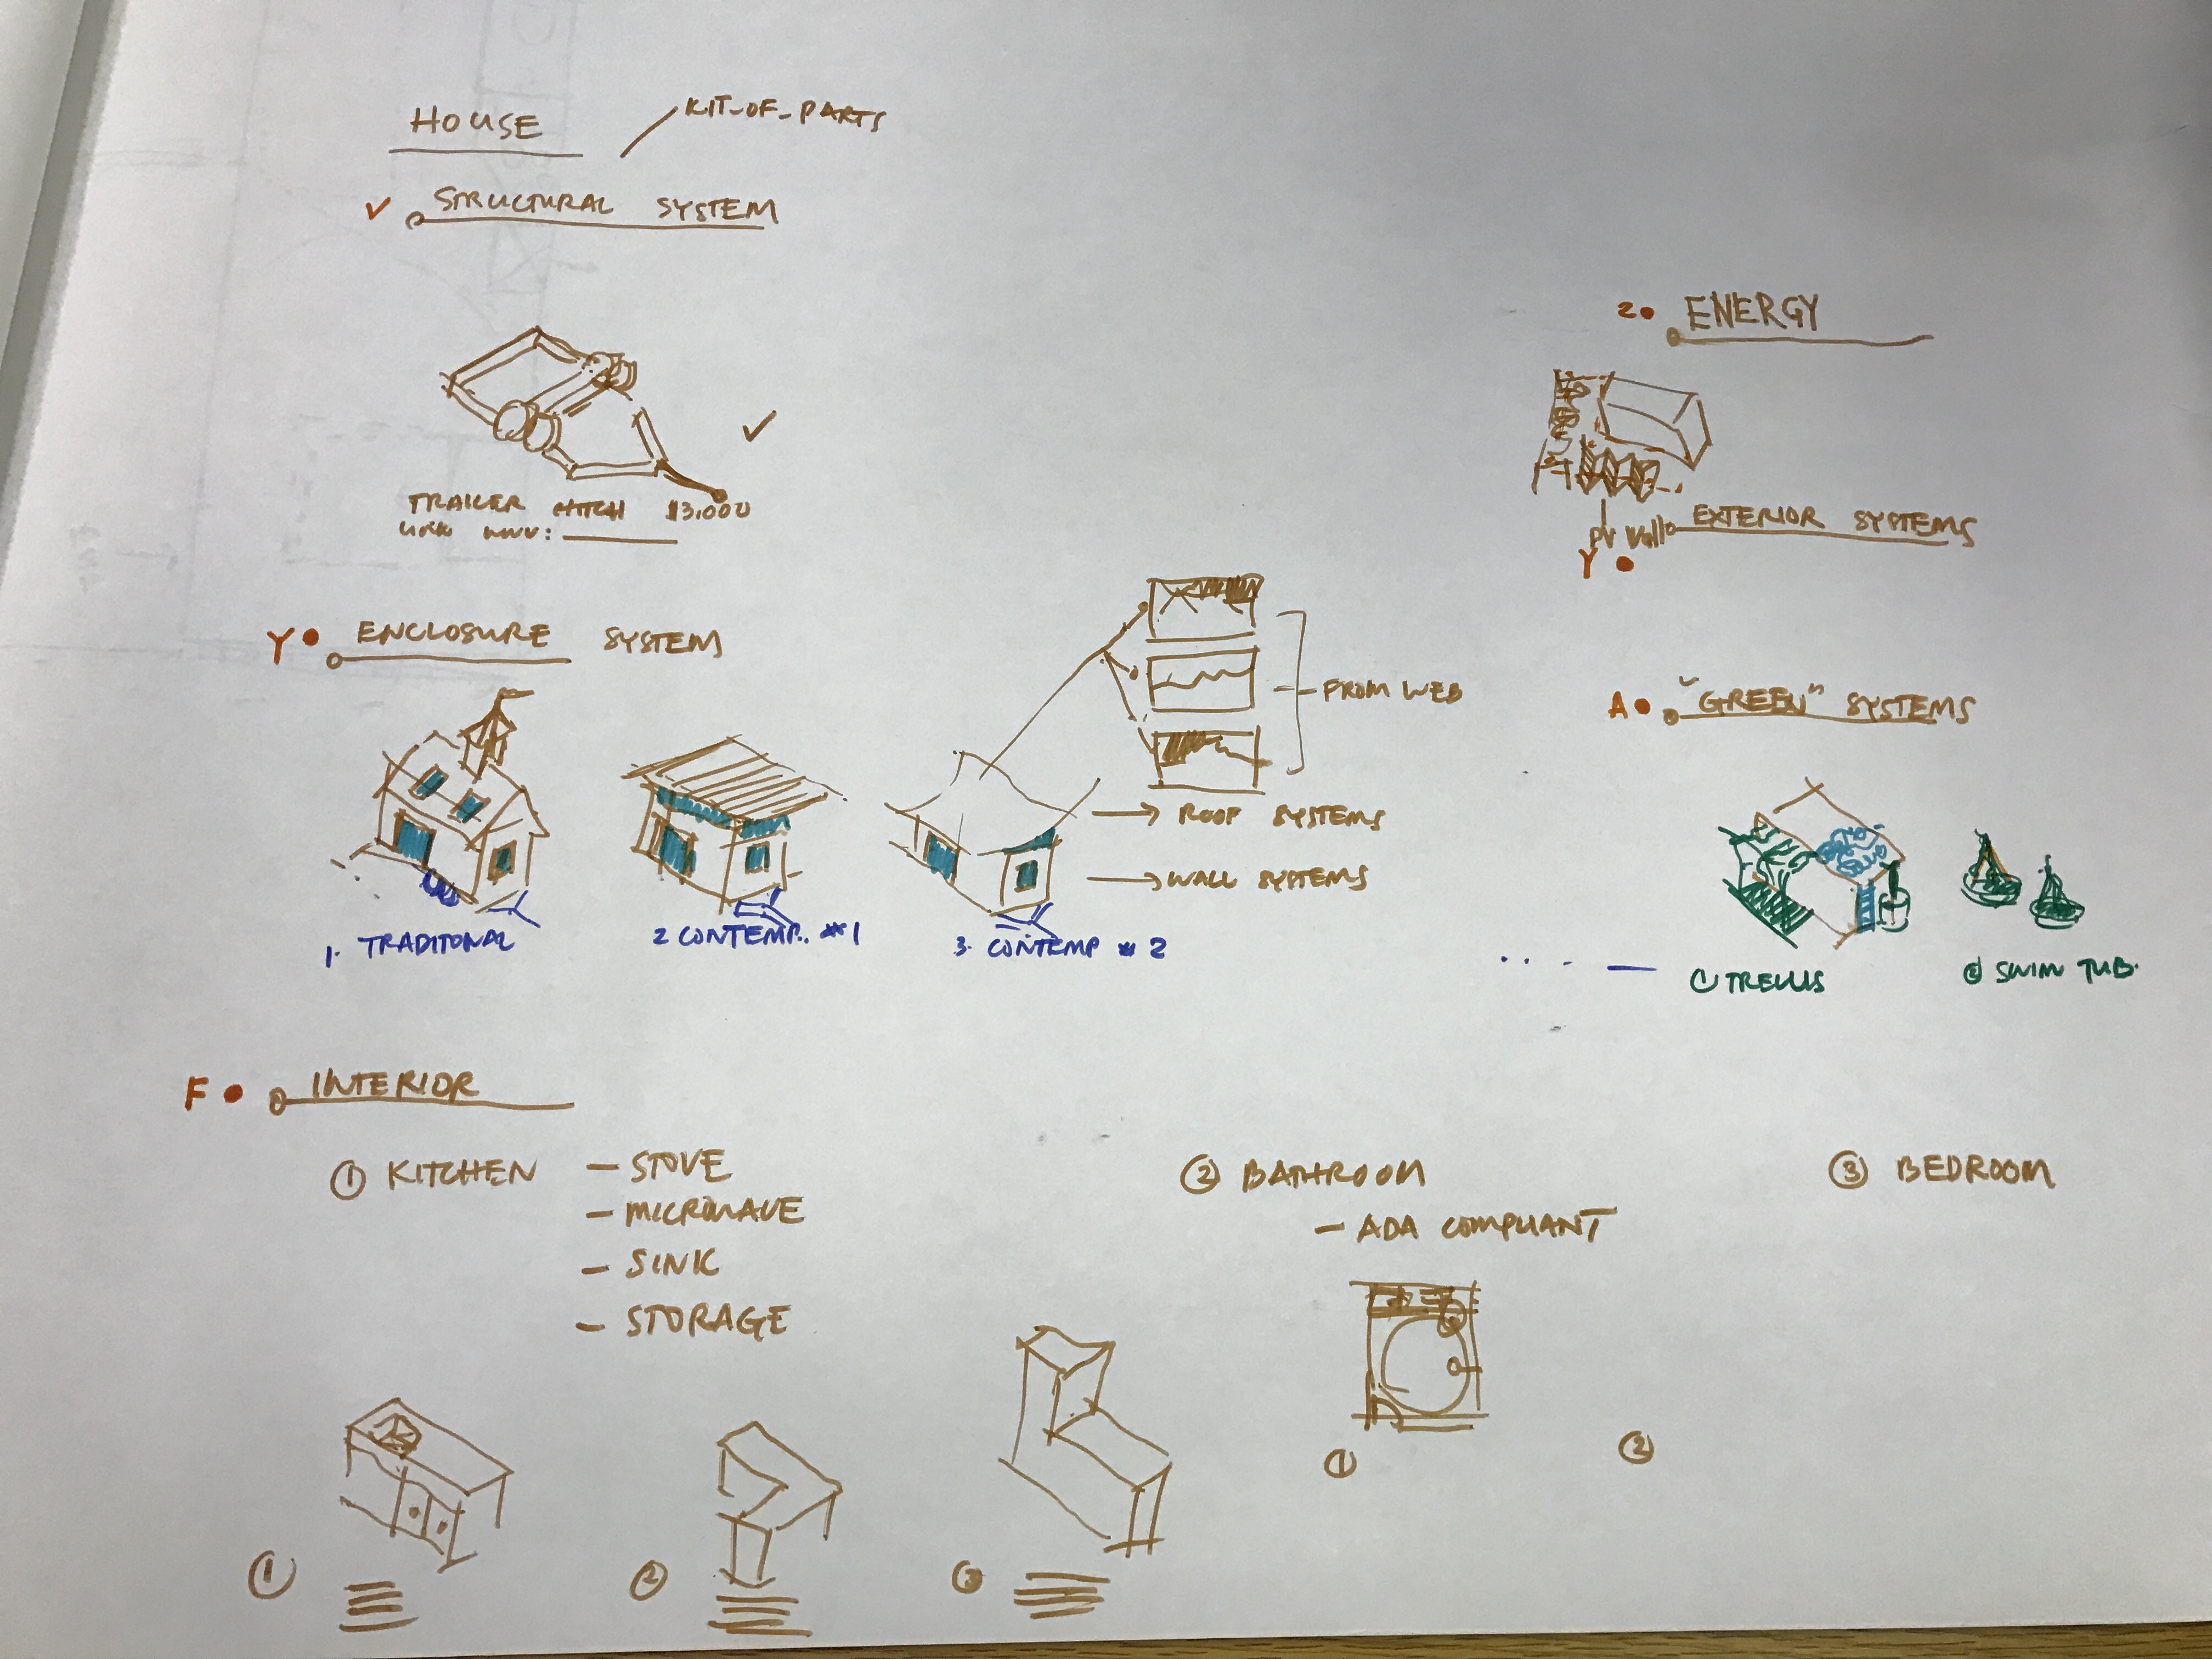 HOUSE
KIT-OF-PARTS
STRUCTURAL SYSTEM
TRAILER HITCH $3,000
Y • ENCLOSURE SYSTEM
FROM WEB
ROOF SYSTEMS
WALL SYSTEMS
1. TRADITONAL
2 CONTEMP. #1
3. CONTEMP # 2
2 • ENERGY
PV Wall
EXTERIOR SYSTEMS
Y •
A • "GREEN" SYSTEMS
① TRELLIS
② SWIM TUB.
F • INTERIOR
① KITCHEN
— STOVE
— MICROWAVE
— SINK
— STORAGE
② BATHROOM
— ADA COMPLIANT
③ BEDROOM
①
②
①
②
③